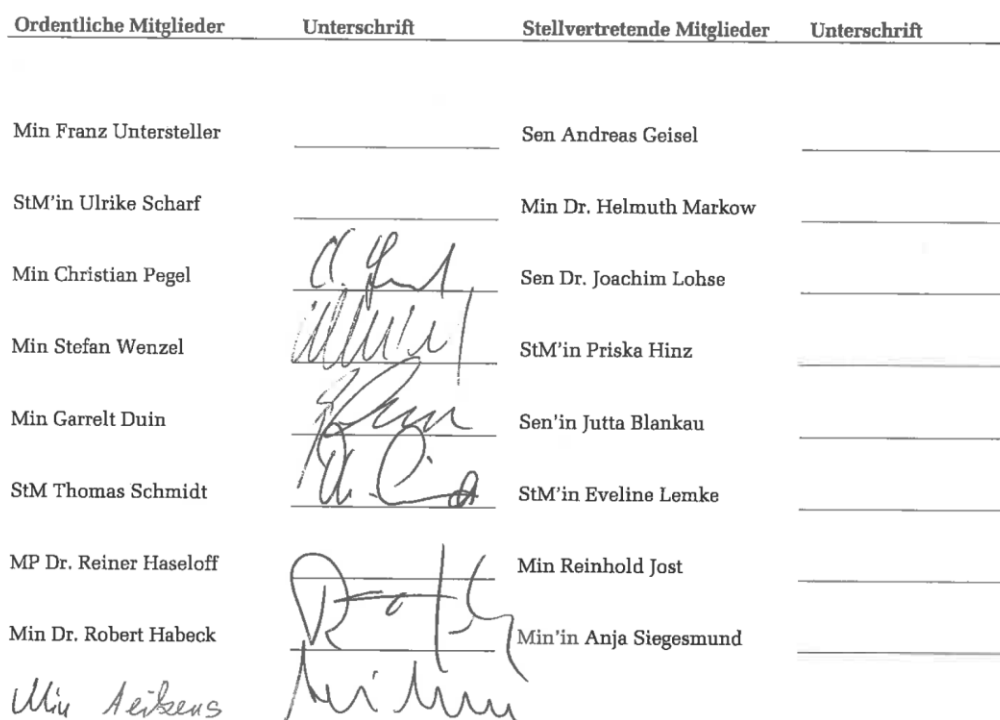 Ordentliche Mitglieder Unterschrift Stellvertretende Mitglieder Unterschrift
Min Franz Untersteller Sen Andreas Geisel
StM'in Ulrike Scharf Min Dr. Helmuth Markow
Min Christian Pegel Sen Dr. Joachim Lohse
Min Stefan Wenzel StM'in Priska Hinz
Min Garrelt Duin Sen'in Jutta Blankau
StM Thomas Schmidt StM'in Eveline Lemke
MP Dr. Reiner Haseloff Min Reinhold Jost
Min Dr. Robert Habeck Min'in Anja Siegesmund
Min